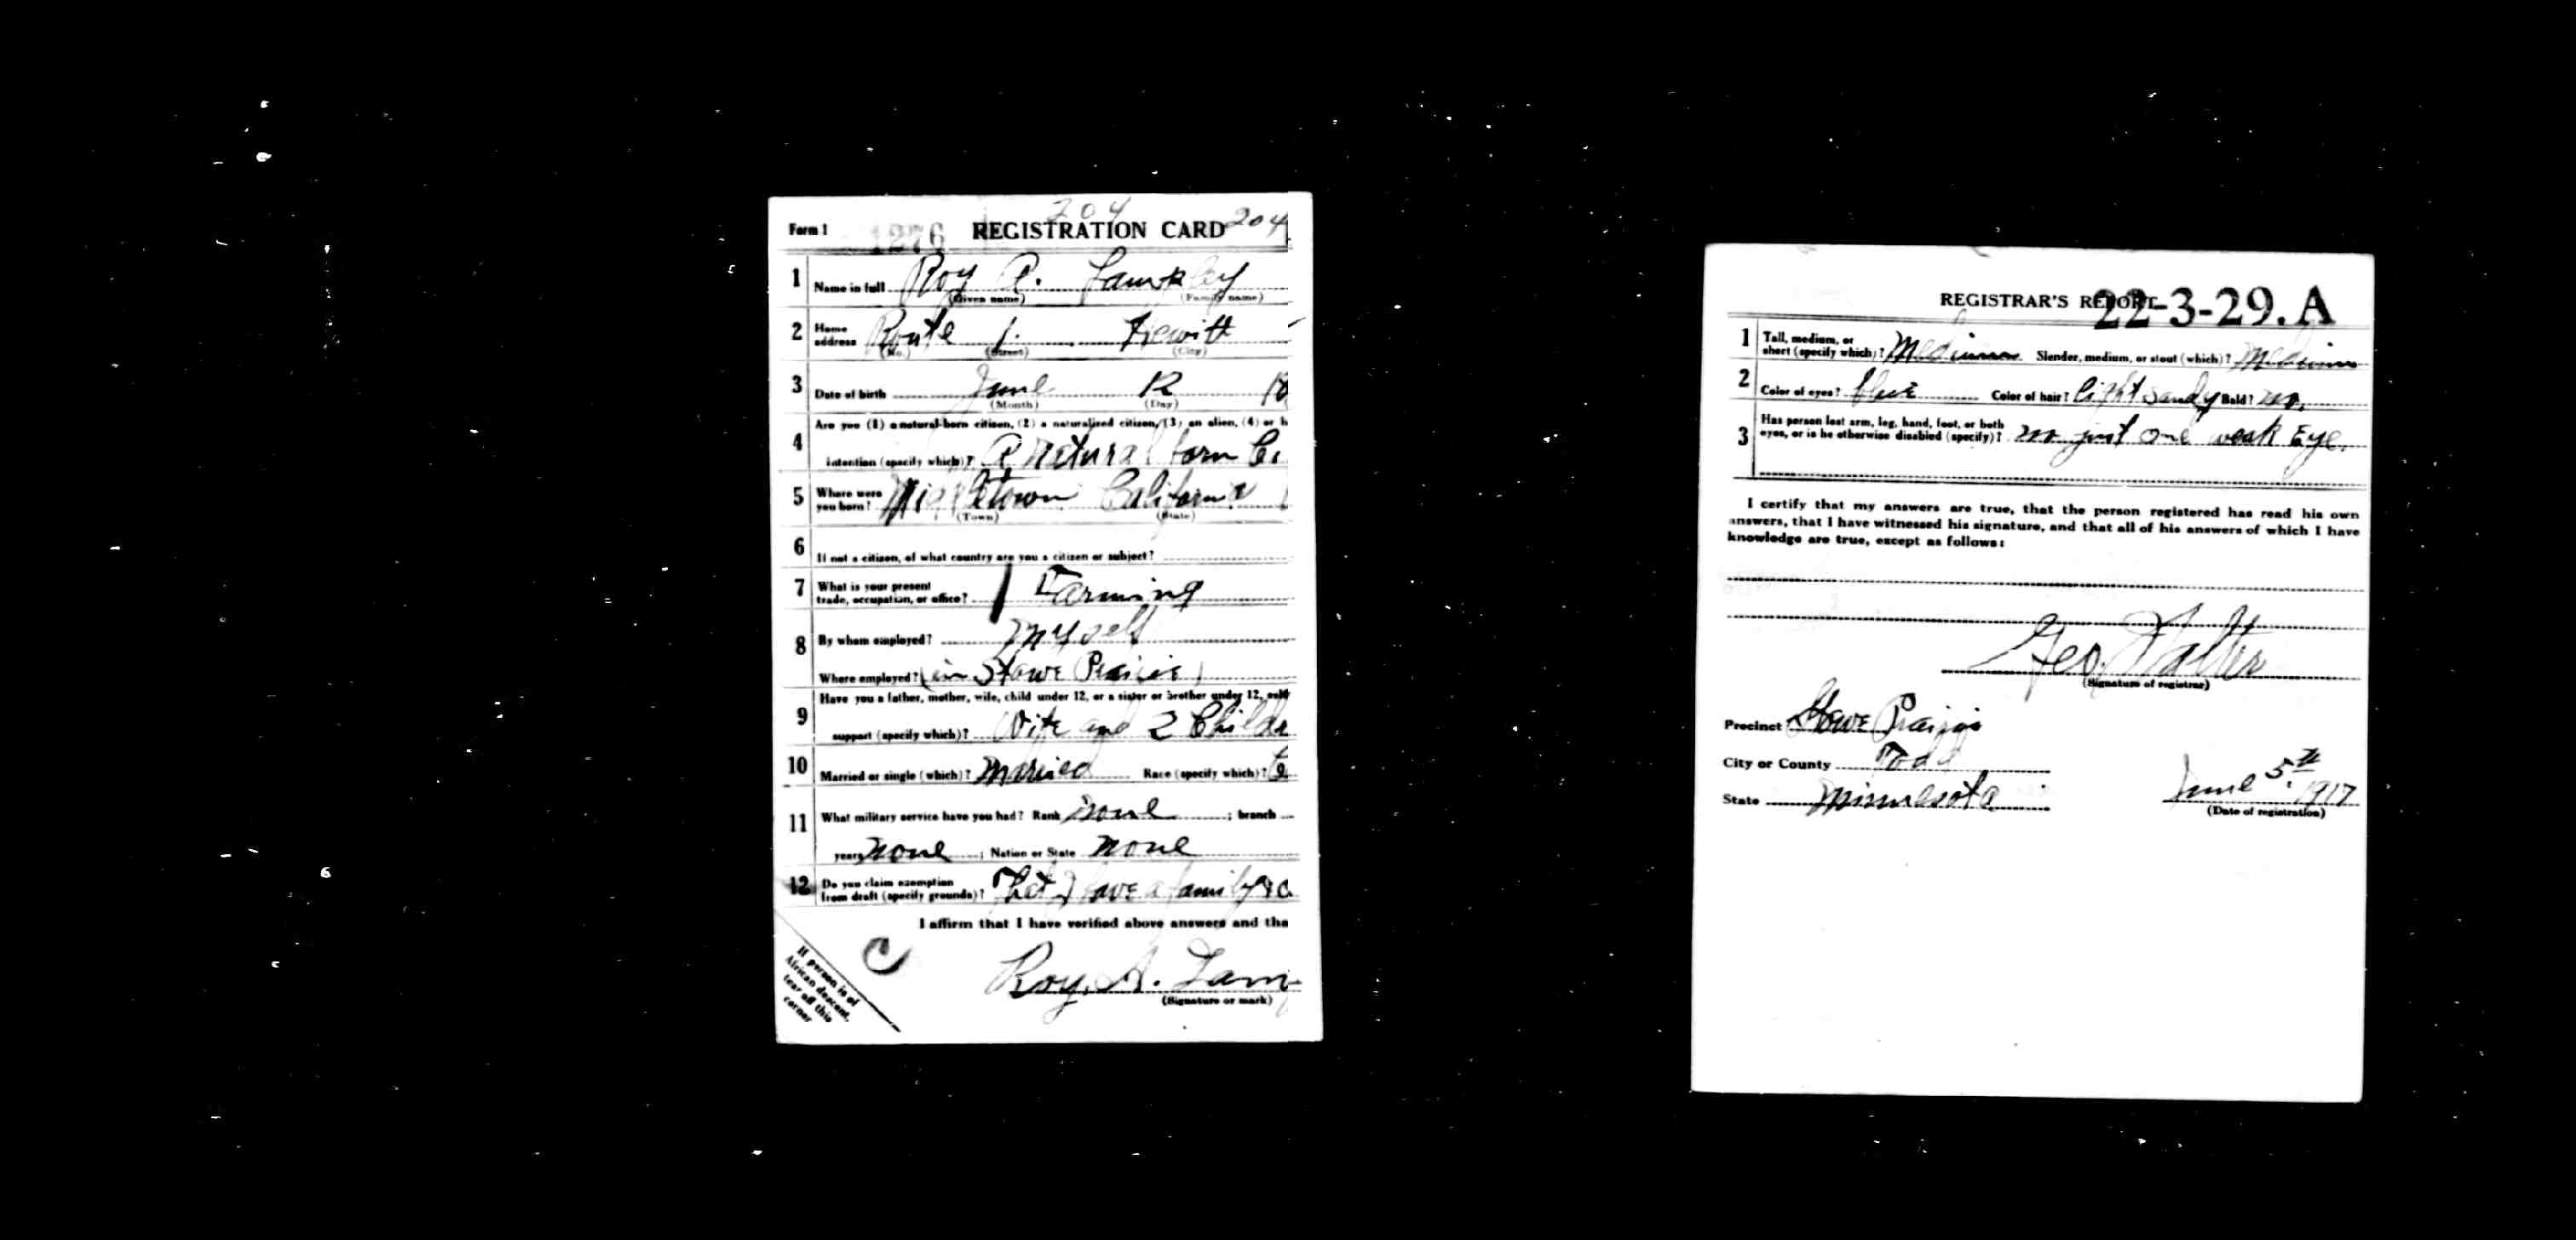 204
Form 1 1276 REGISTRATION CARD 204
1 Name in full Roy A.
(Given name) (Family name)
2 Home address Route 1. Hewitt
(No.) (Street) (City)
3 Date of birth June 12 18
(Month) (Day)
Are you (1) a natural-born citizen, (2) a naturalized citizen, (3) an alien, (4) or h
4 intention (specify which)? A natural born Ci
5 Where were you born? Middletown California
(Town) (State)
6 If not a citizen, of what country are you a citizen or subject?
7 What is your present trade, occupation, or office? Farming
8 By whom employed? myself
Where employed? in Stowe Prairie
9 Have you a father, mother, wife, child under 12, or a sister or brother under 12, sole
support (specify which)? Wife and 2 Childr
10 Married or single (which)? Married Race (specify which)? C
11 What military service have you had? Rank none ; branch
years none ; Nation or State none
12 Do you claim exemption from draft (specify grounds)? That I have a family
I affirm that I have verified above answers and tha
Roy. A. Lam
(Signature or mark)
If person is of
African descent,
tear off this
corner
REGISTRAR'S REPORT 22-3-29. A
1 Tall, medium, or short (specify which)? Medium Slender, medium, or stout (which)? Medium
2 Color of eyes? blue Color of hair? light sandy Bald? no.
3 Has person lost arm, leg, hand, foot, or both eyes, or is he otherwise disabled (specify)? no just one weak Eye.
I certify that my answers are true, that the person registered has read his own
answers, that I have witnessed his signature, and that all of his answers of which I have
knowledge are true, except as follows:
Geo.
(Signature of registrar)
Precinct Stowe Prairie
City or County Todd
State Minnesota
June 5th 1917
(Date of registration)